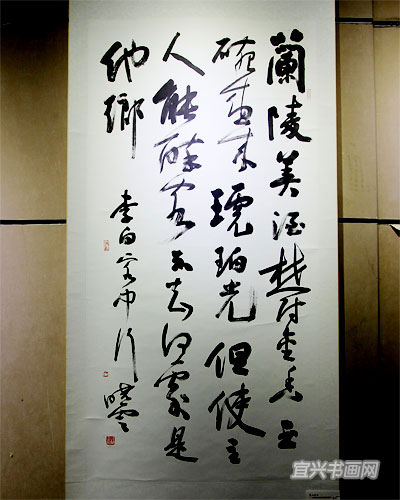 蘭陵美酒鬱金香玉
碗盛來琥珀光但使主
人能醉客不知何處是
他鄉
李白客中行 曉雲
宜兴书画网